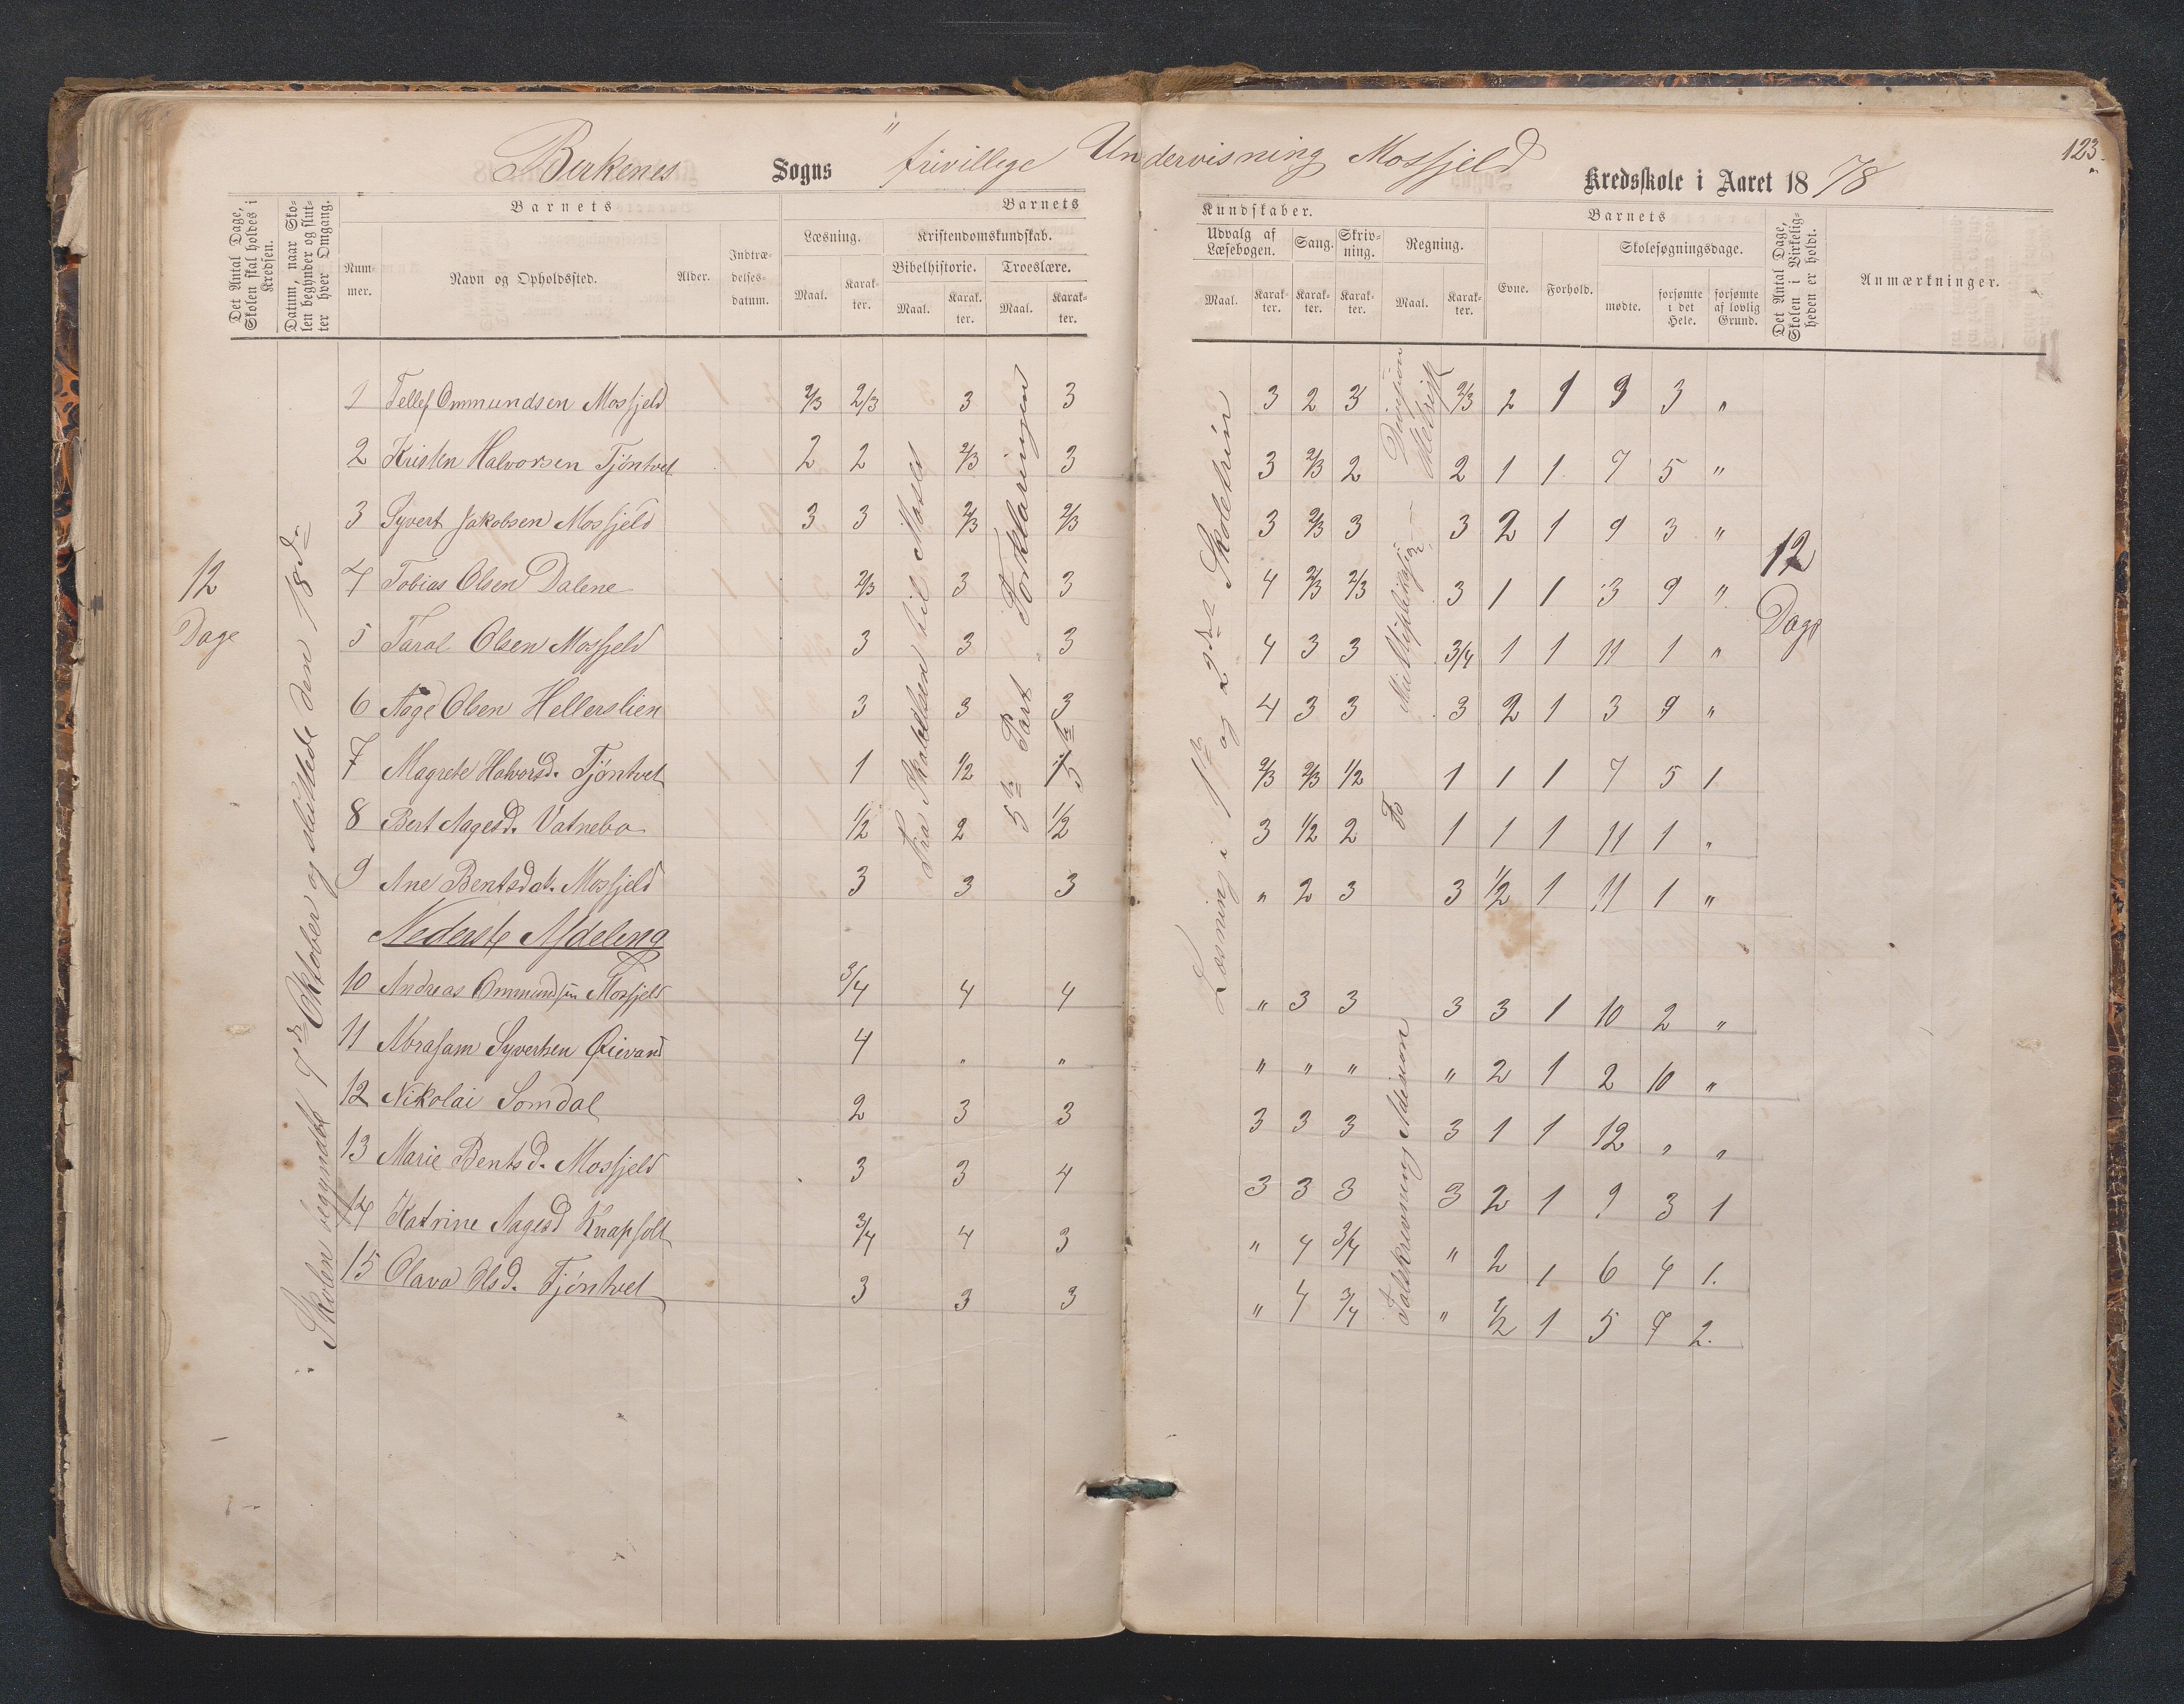 123.
Birkenes Sogns " frivillege Undervisning Mosfjeld Kredsskole i Aaret 1878
Det Antal Dage, Skolen skal holdes i Kredsen.
Datum, naar Skolen begynder og slutter hver Omgang.
Barnets
Nummer.
Navn og Opholdssted.
Alder.
Indtrædelsesdatum.
Barnets
Læsning.
Maal.
Karakter.
Kristendomskundskab.
Bibelhistorie.
Maal.
Karakter.
Troeslære.
Maal.
Karakter.
Kundskaber.
Udvalg af Læsebogen.
Maal.
Karakter.
Sang.
Karakter.
Skrivning.
Karakter.
Regning.
Maal.
Karakter.
Barnets
Evne.
Forhold.
Skolesøgningsdage.
mødte.
forsømte i det Hele.
forsømte af lovlig Grund.
Det Antal Dage, Skolen i Virkeligheden er holdt.
Anmærkninger.
12 Dage
Skolen begyndte 7de Oktober og sluttede den 18de
Fra Skabelsen til Moses
5te Part Forklaringen
Læsning i 1ste og 2det Skoletrin
Multiplikasjon
Divisjon
Talskrivning Adision
12 Dage
1 Tellef Ommundsen Mosfjeld 2/3 2/3 3 3 3 2 3 2/3 2 1 9 3 "
2 Kristen Halvorsen Tjøntvet 2 2 2/3 3 3 2/3 2 2 1 1 7 5 "
3 Syvert Jakobsen Mosfjeld 3 3 2/3 2/3 3 2/3 3 3 2 1 9 3 "
4 Tobias Olsen Dalene 2/3 3 3 4 2/3 2/3 3 1 1 3 9 "
5 Taral Olsen Mosfjeld 3 3 3 4 3 3 3/4 1 1 11 1 "
6 Aage Olsen Hellerslien 3 3 3 4 3 3 3 2 1 3 9 "
7 Magrete Halvorsd. Tjøntvet 1 1/2 2/3 2/3 1/2 1 1 1 7 5 1
8 Bert Aagesd. Vatnebo 1/2 2 1/2 3 1/2 2 1 1 1 11 1 "
9 Ane Bentsdat. Mosfjeld 3 3 3 " 2 3 3 1/2 1 11 1 "
Nederste Afdeling
10 Andreas Ommundsen Mosfjeld 3/4 4 4 " 3 3 3 3 1 10 2 "
11 Abraham Syvertsen Øievand 4 " " " " " " 2 1 2 10 "
12 Nikolai Somdal 2 3 3 3 3 3 3 1 1 12 " "
13 Marie Bentsd. Mosfjeld 3 3 4 3 3 3 3 2 1 9 3 1
14 Katrine Aagesd Knapholt 3/4 4 3 " 4 3/4 " 2 1 6 4 1.
15 Olava Olsd. Tjøntvet 3 3 3 " 4 3/4 " 1/2 1 5 7 2.